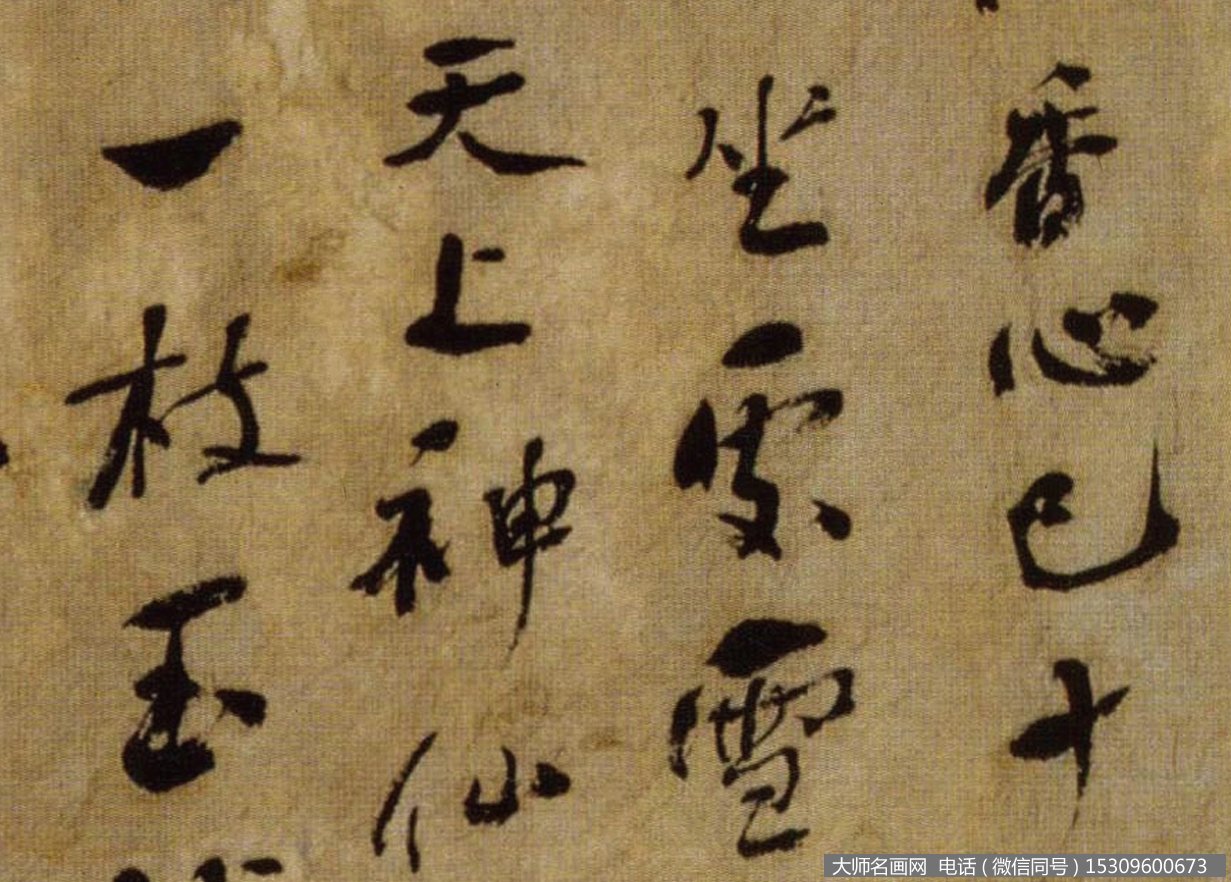 香心已十
坐雪
天上神仙
一枝玉
大师名画网 电话（微信同号）15309600673